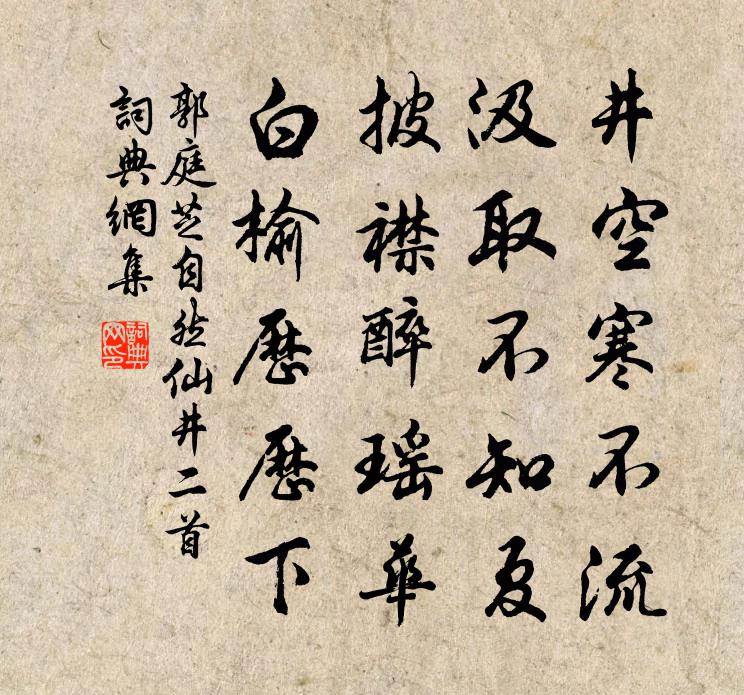 井空寒不流
汲取不知夏
披襟醉瑶華
白榆歷歷下
郭庭芝自然仙井二首
詞典網集
詞典网印